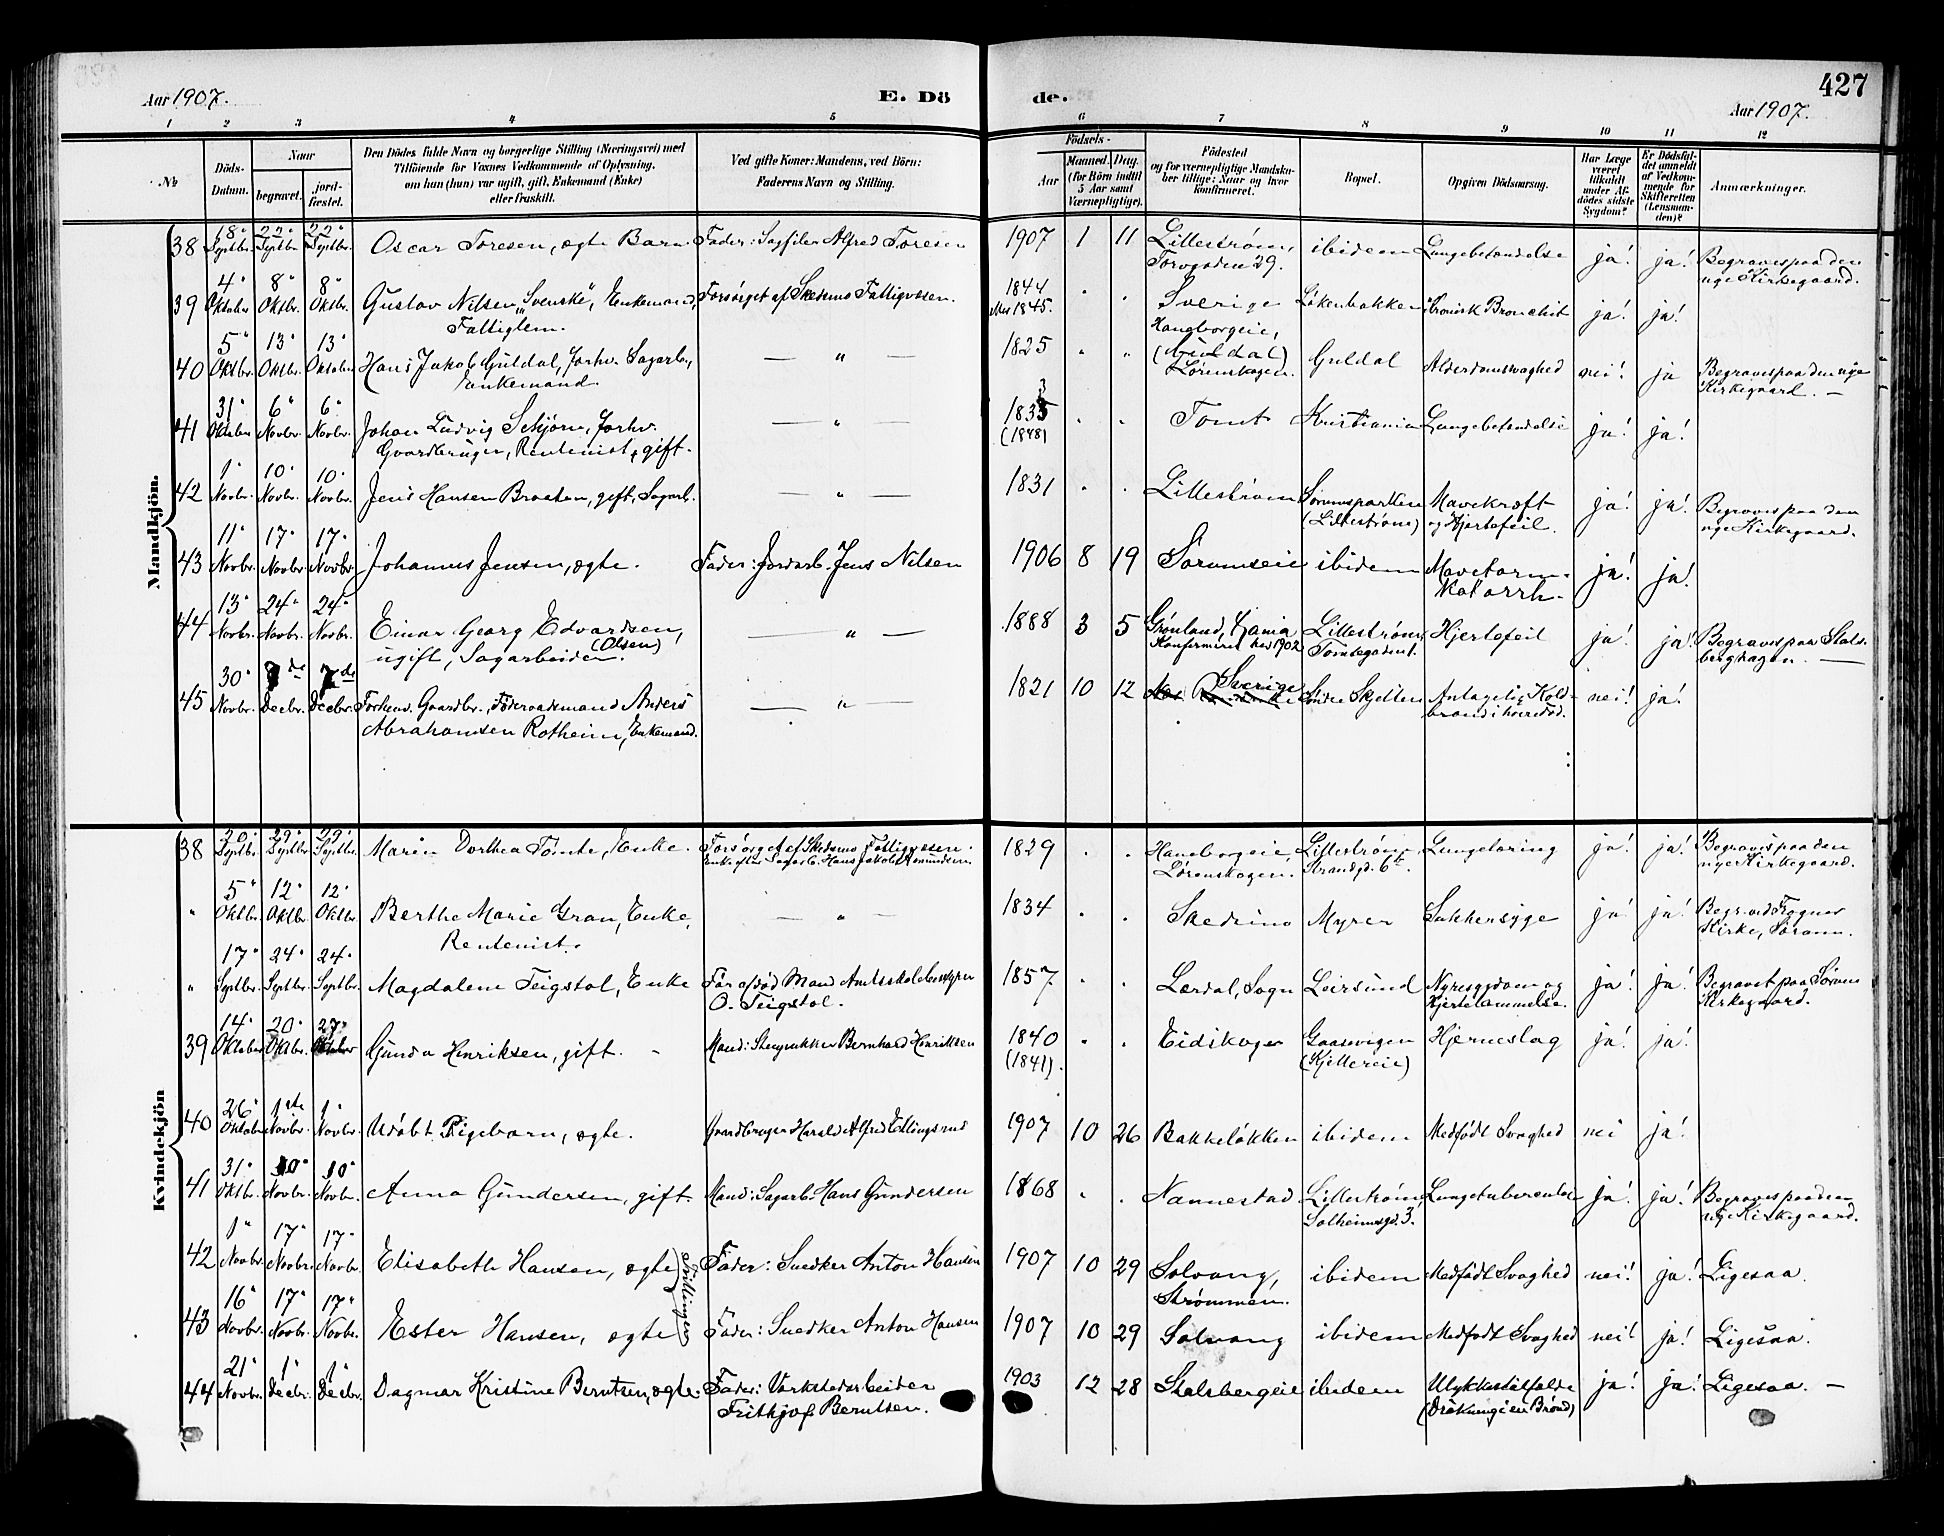 427
Aar 1907. E. Dö de. Aar 1907.
1 2 3 4 5 6 7 8 9 10 11 12
No
Döds-Datum.
Naar
begravet.
jord-fæstet.
Den Dödes fulde Navn og borgerlige Stilling (Næringsvei) med
Tilföiende for Voxnes Vedkommende af Oplysning,
om han (hun) var ugift, gift, Enkemand (Enke)
eller fraskilt.
Ved gifte Koner: Mandens, ved Börn:
Faderens Navn og Stilling.
Födsels-
Aar
Maaned. Dag.
(for Börn indtil
5 Aar samt
Værnepligtige).
Födested
og for værnepligtige Mandskaber tillige: Naar og hvor
konfirmeret.
Bopæl.
Opgiven Dödsaarsag.
Har Læge været tilkaldt under Afdödes sidste Sygdom?
Er Dödsfaldet anmeldt af Vedkommende for Skifteretten (Lensmanden)?
Anmærkninger.
Mandkjön.
38 18' Septbr. 22' Septbr. 22' Septbr. Oscar Toresen, ægte Barn. Fader: Sagfiler Alfred Toresen 1907 1 11 Lillestrøm, Torvgaden 29. ibidem Lungebetændelse ja! ja! Begravet paa den nye Kirkegaard.
39 4' Oktober 8' Oktbr. 8' Oktbr. Gustav Nilsen „Svenske", Enkemand, Fattiglem. Forsørget af Skedsmo Fattigvæsen. 1844 eller 1845. " " Sverige Løkenbakken Kronisk Bronchit ja! ja!
40 5" Oktbr. 13" Oktbr. 13" Oktober Hans Jakob Guldal, forhv. Sagarb., Enkemand. — " — 1825 " " Haneborgeie, (Guldal) Lørenskogen. Guldal Alderdomssvaghed nei! ja Begravet paa den nye Kirkegaard. —
41 31' Oktober 6" Novbr. 6" Novbr. Johan Ludvig Schjørn, forhv. Gaardbruger, Rentenist, gift. — " — 1835 (1848) " " Tomt Kristiania Lungebetændelse ja! ja!
42 1' Novbr. 10' Novbr. 10' Novbr. Jens Hansen Braaten, gift, Sagarb. — " — 1831 " " Lillestrøm Sørumsparken (Lillestrøm) Mavekræft og Hjertefeil. ja! ja! Begravet paa den nye Kirkegaard.
43 11' Novbr. 17' Novbr. 17' Novbr. Johannes Jensen, ægte. Fader: Jordarb. Jens Nilsen 1906 8 19 Sørumseie ibidem Mavetarm-Katarrh. ja! ja!
44 13' Novbr. 24' Novbr. 24' Novbr. Einar Georg Edvardsen, (Olsen) ugift, Sagarbeider. — " — 1888 3 5 Grønland, Kania Konfirmeret her 1902 Lillestrøm, Tomtegaden 1. Hjertefeil ja! ja! Begravet paa Stalsberghagen. —
45 30' Novbr. 7de Decbr. 7de Decbr. Forhenv. Gaardbr., Føderaadsmand Anders Abrahamsen Rotheim, Enkemand. — " — 1821 10 12 Sverige Søndre Skjetten Antagelig Koldbrand i høire Fod. nei! ja!
Kvindekjön
38 20' Septbr. 29' Septbr. 29' Septbr. Maren Dorthea Tomte, Enke. Forsørget af Skedsmo Fattigvæsen. Enke efter Sagarb. Hans Jakob Amundsen. 1829 " " Haneborgeie, Lørenskogen. Lillestrøm, Strandgd. 6b. Lungetæring ja! ja! Begravet paa den nye Kirkegaard.
" 5" Oktbr. 12' Oktbr. 12' Oktbr. Berthe Marie Gran, Enke, Rentenist. — " — 1834 " " Skedsmo Myrer Sukkersyge ja! ja! Begr. ved Frogner Kirke, Sørum.
" 17' Septbr. 24' Septbr. 24' Septbr. Magdalene Teigstol, Enke Før afdød Mand Amtsskolebestyrer O. Teigstol. 1857 " " Lærdal, Sogn Leirsund Nyresygdom og Hjertelammelse. ja! ja! Begravet paa Sørum Kirkegaard.
39 14' Oktober 20' Oktbr. 27' Oktober Gunda Henriksen, gift. Mand: Stenhukker Bernhard Henriksen 1840 (1841). " " Eidskogen Gaasevigen (Kjellereie) Hjerneslag ja! ja!
40 26' Oktober 1ste Novbr. 1' Novbr. Udøbt Pigebarn, ægte. Gaardbruger Harald Alfred Ellingsrud 1907 10 26 Bakkeløkken ibidem Medfødt Svaghed nei ja!
41 31' Oktbr. 10' Novbr. 10' Novbr. Anna Gundersen, gift. Mand: Sagarb. Hans Gundersen 1868 " " Nannestad Lillestrøm Solheimsgd. 3. Lungetuberculose ja! ja! Begravet paa den nye Kirkegaard.
42 1" Novbr. 17' Novbr. 17' Novbr. Elisabeth Hansen, ægte (Tvillinger) Fader: Snedker Anton Hansen 1907 10 29 Solvang, Strømmen. ibidem Medfødt Svaghed nei! ja! Ligesaa.
43 16' Novbr. 17' Novbr. 17' Novbr. Ester Hansen, ægte Fader: Snedker Anton Hansen 1907 10 29 Solvang ibidem Medfødt Svaghed nei! ja! Ligesaa.
44 21' Novbr. 1' Decbr. 1' Decbr. Dagmar Kristine Berntsen, ægte. Fader: Værkstedarbeider Frithjof Berntsen. 1903 12 28 Stalsbergeie ibidem Ulykkestilfælde (Drukning i en Brønd) ja! ja! Ligesaa. —